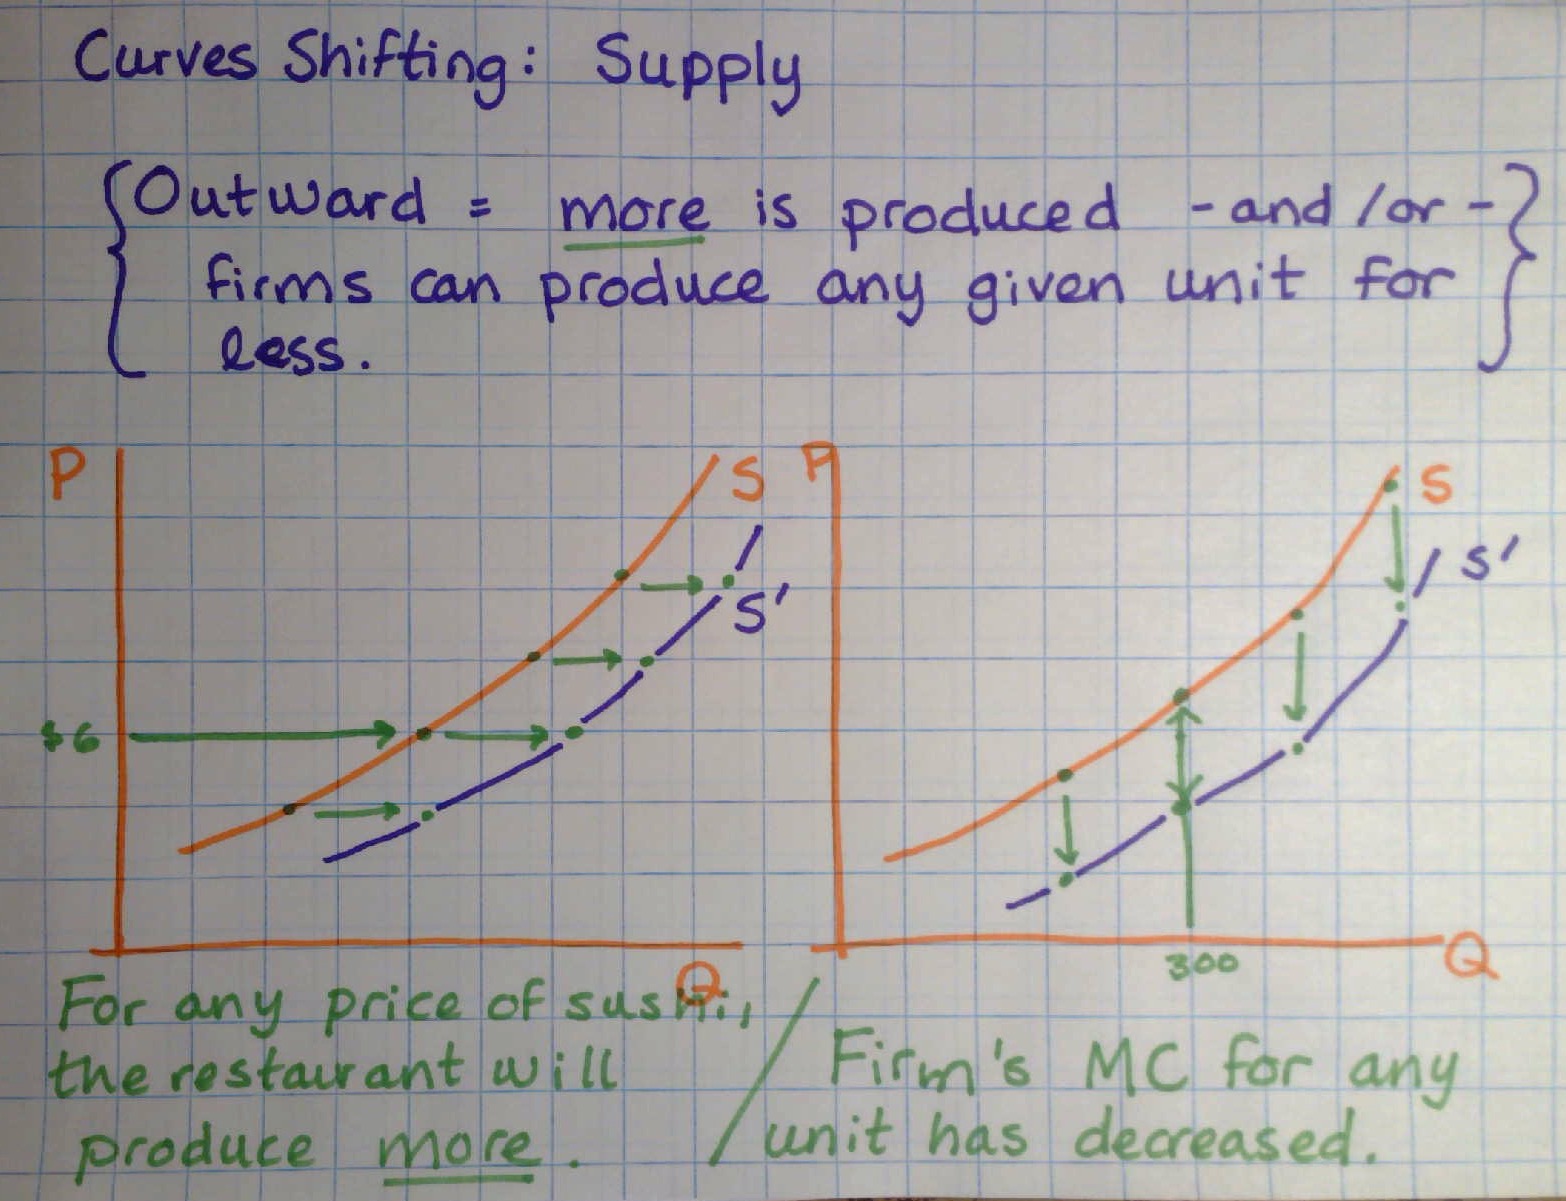 Curves Shifting: Supply
{Outward = more is produced -and/or-}
firms can produce any given unit for
less.
P
S
S'
$6
Q
P
S
S'
300
Q
For any price of sushi,
the restaurant will
produce more.
/
Firm's MC for any
unit has decreased.